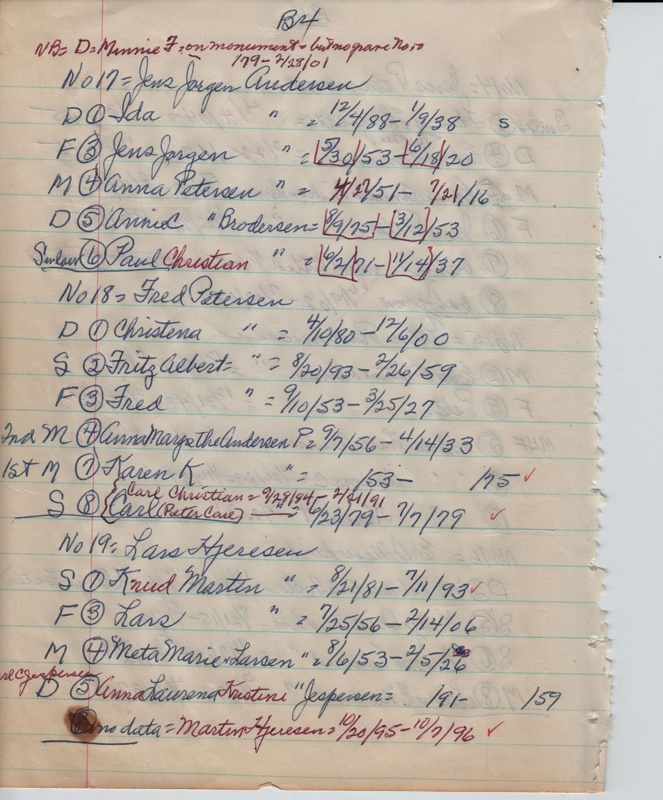 B4
NB= D= Minnie F. = on monument - but no grave No. is
179 - 2/28/01
No 17 = Jens Jorgen Andersen
D ① Ida " = 12/4/88 - 1/9/38 S
F ③ Jens Jorgen " = 5/30/53 - 6/18/20
M ④ Anna Petersen " = /51 - 7/21/16
D ⑤ Annie C " Brodersen = 8/9/75 - 3/12/53
⑥ Paul Christian " = 6/2/71 - 11/14/37
No 18 = Fred Petersen
D ① Christena " = 4/10/80 - 12/6/00
S ② Fritz Albert = " = 8/20/93 - 2/26/59
F ③ Fred " = 9/10/53 - 3/25/27
2nd M ④ Anna Margrethe Andersen P = 9/7/56 - 4/14/33
1st M ⑦ Karen K " = /53 - /75 ✓
Carl Christian = 9/28/84 - 2/21/91
S ⑧ Carl (Peter Care) = 6/23/79 - 7/7/79 ✓
No 19 = Lars Hjeresen
S ① Knud Martin " = 8/21/81 - 7/11/93 ✓
F ③ Lars " = 7/25/56 - 2/14/06
M ④ "Meta Marie" Larsen " = 8/6/53 - 2/5/26
D ⑤ Anna Laurena Kristine " Jespersen = /91 - /59
⑧ no data = Martin Hjeresen = 10/20/95 - 10/7/96 ✓